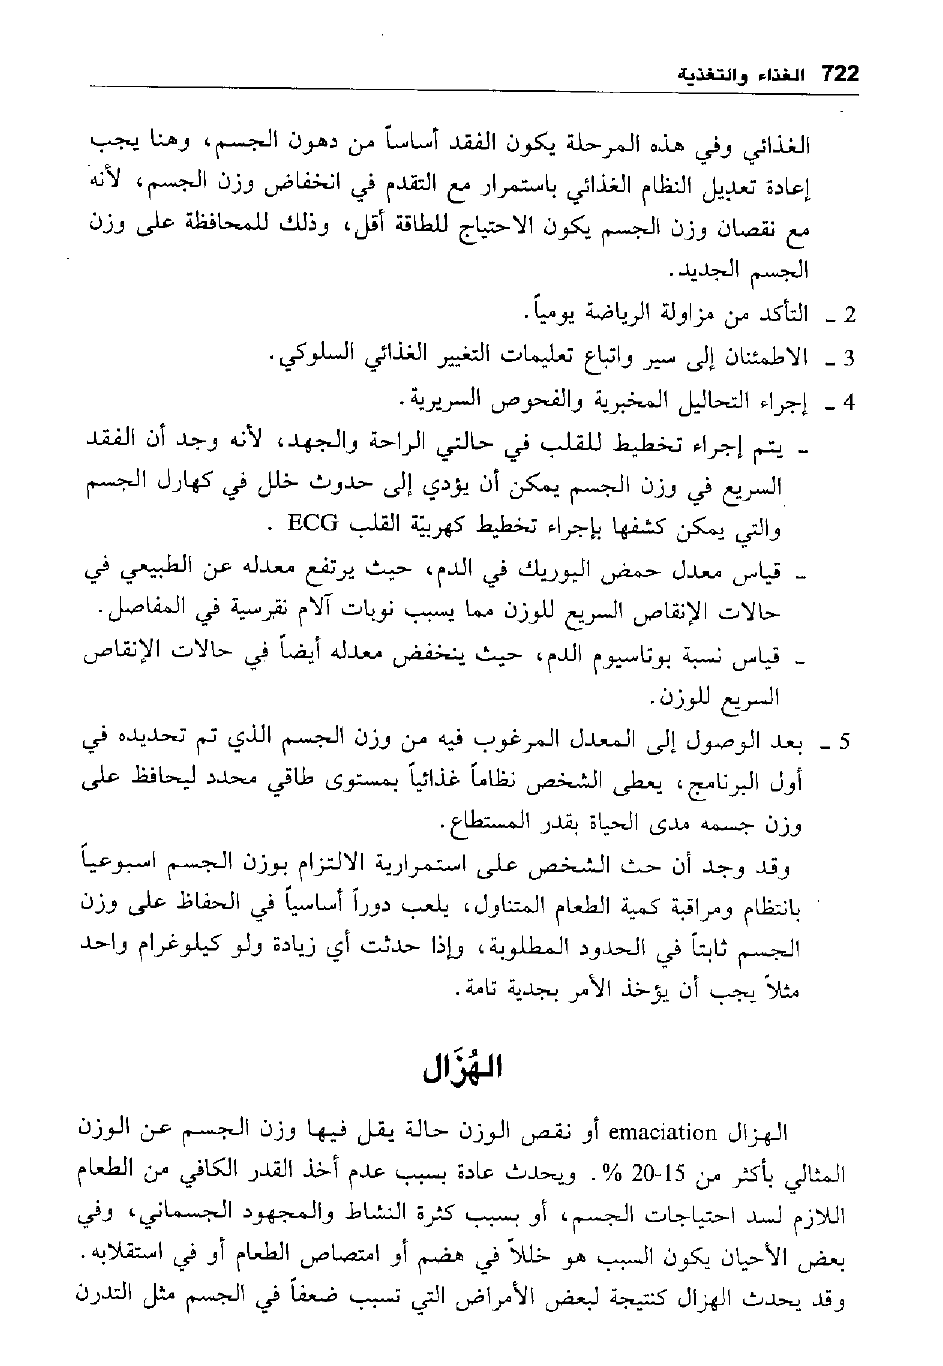 722 الغذاء والتغذية
الغذائي وفي هذه المرحلة يكون الفقد أساساً من دهون الجسم، وهنا يجب
إعادة تعديل النظام الغذائي باستمرار مع التقدم في انخفاض وزن الجسم، لأنه
مع نقصان وزن الجسم يكون الاحتياج للطاقة أقل، وذلك للمحافظة على وزن
الجسم الجديد.
2 ـ التأكد من مزاولة الرياضة يومياً.
3 ـ الاطمئنان إلى سير واتباع تعليمات التغيير الغذائي السلوكي.
4 ـ إجراء التحاليل المخبرية والفحوص السريرية.
ـ يتم إجراء تخطيط للقلب في حالتي الراحة والجهد، لأنه وجد أن الفقد
السريع في وزن الجسم يمكن أن يؤدي إلى حدوث خلل في كهارل الجسم
والتي يمكن كشفها بإجراء تخطيط كهربيّة القلب ECG .
ـ قياس معدل حمض اليوريك في الدم، حيث يرتفع معدله عن الطبيعي في
حالات الإنقاص السريع للوزن مما يسبب نوبات آلام نقرسية في المفاصل.
ـ قياس نسبة بوتاسيوم الدم، حيث ينخفض معدله أيضاً في حالات الإنقاص
السريع للوزن.
5 ـ بعد الوصول إلى المعدل المرغوب فيه من وزن الجسم الذي تم تحديده في
أول البرنامج، يعطى الشخص نظاماً غذائياً بمستوى طاقي محدد ليحافظ على
وزن جسمه مدى الحياة بقدر المستطاع.
وقد وجد أن حث الشخص على استمرارية الالتزام بوزن الجسم اسبوعياً
بانتظام ومراقبة كمية الطعام المتناول، يلعب دوراً أساسياً في الحفاظ على وزن
الجسم ثابتاً في الحدود المطلوبة، وإذا حدثت أي زيادة ولو كيلوغرام واحد
مثلاً يجب أن يؤخذ الأمر بجدية تامة.
الهُزَال
الهزال emaciation أو نقص الوزن حالة يقل فيها وزن الجسم عن الوزن
المثالي بأكثر من 15-20 %. ويحدث عادة بسبب عدم أخذ القدر الكافي من الطعام
اللازم لسد احتياجات الجسم، أو بسبب كثرة النشاط والمجهود الجسماني، وفي
بعض الأحيان يكون السبب هو خللاً في هضم أو امتصاص الطعام أو في استقلابه.
وقد يحدث الهزال كنتيجة لبعض الأمراض التي تسبب ضعفاً في الجسم مثل التدرن